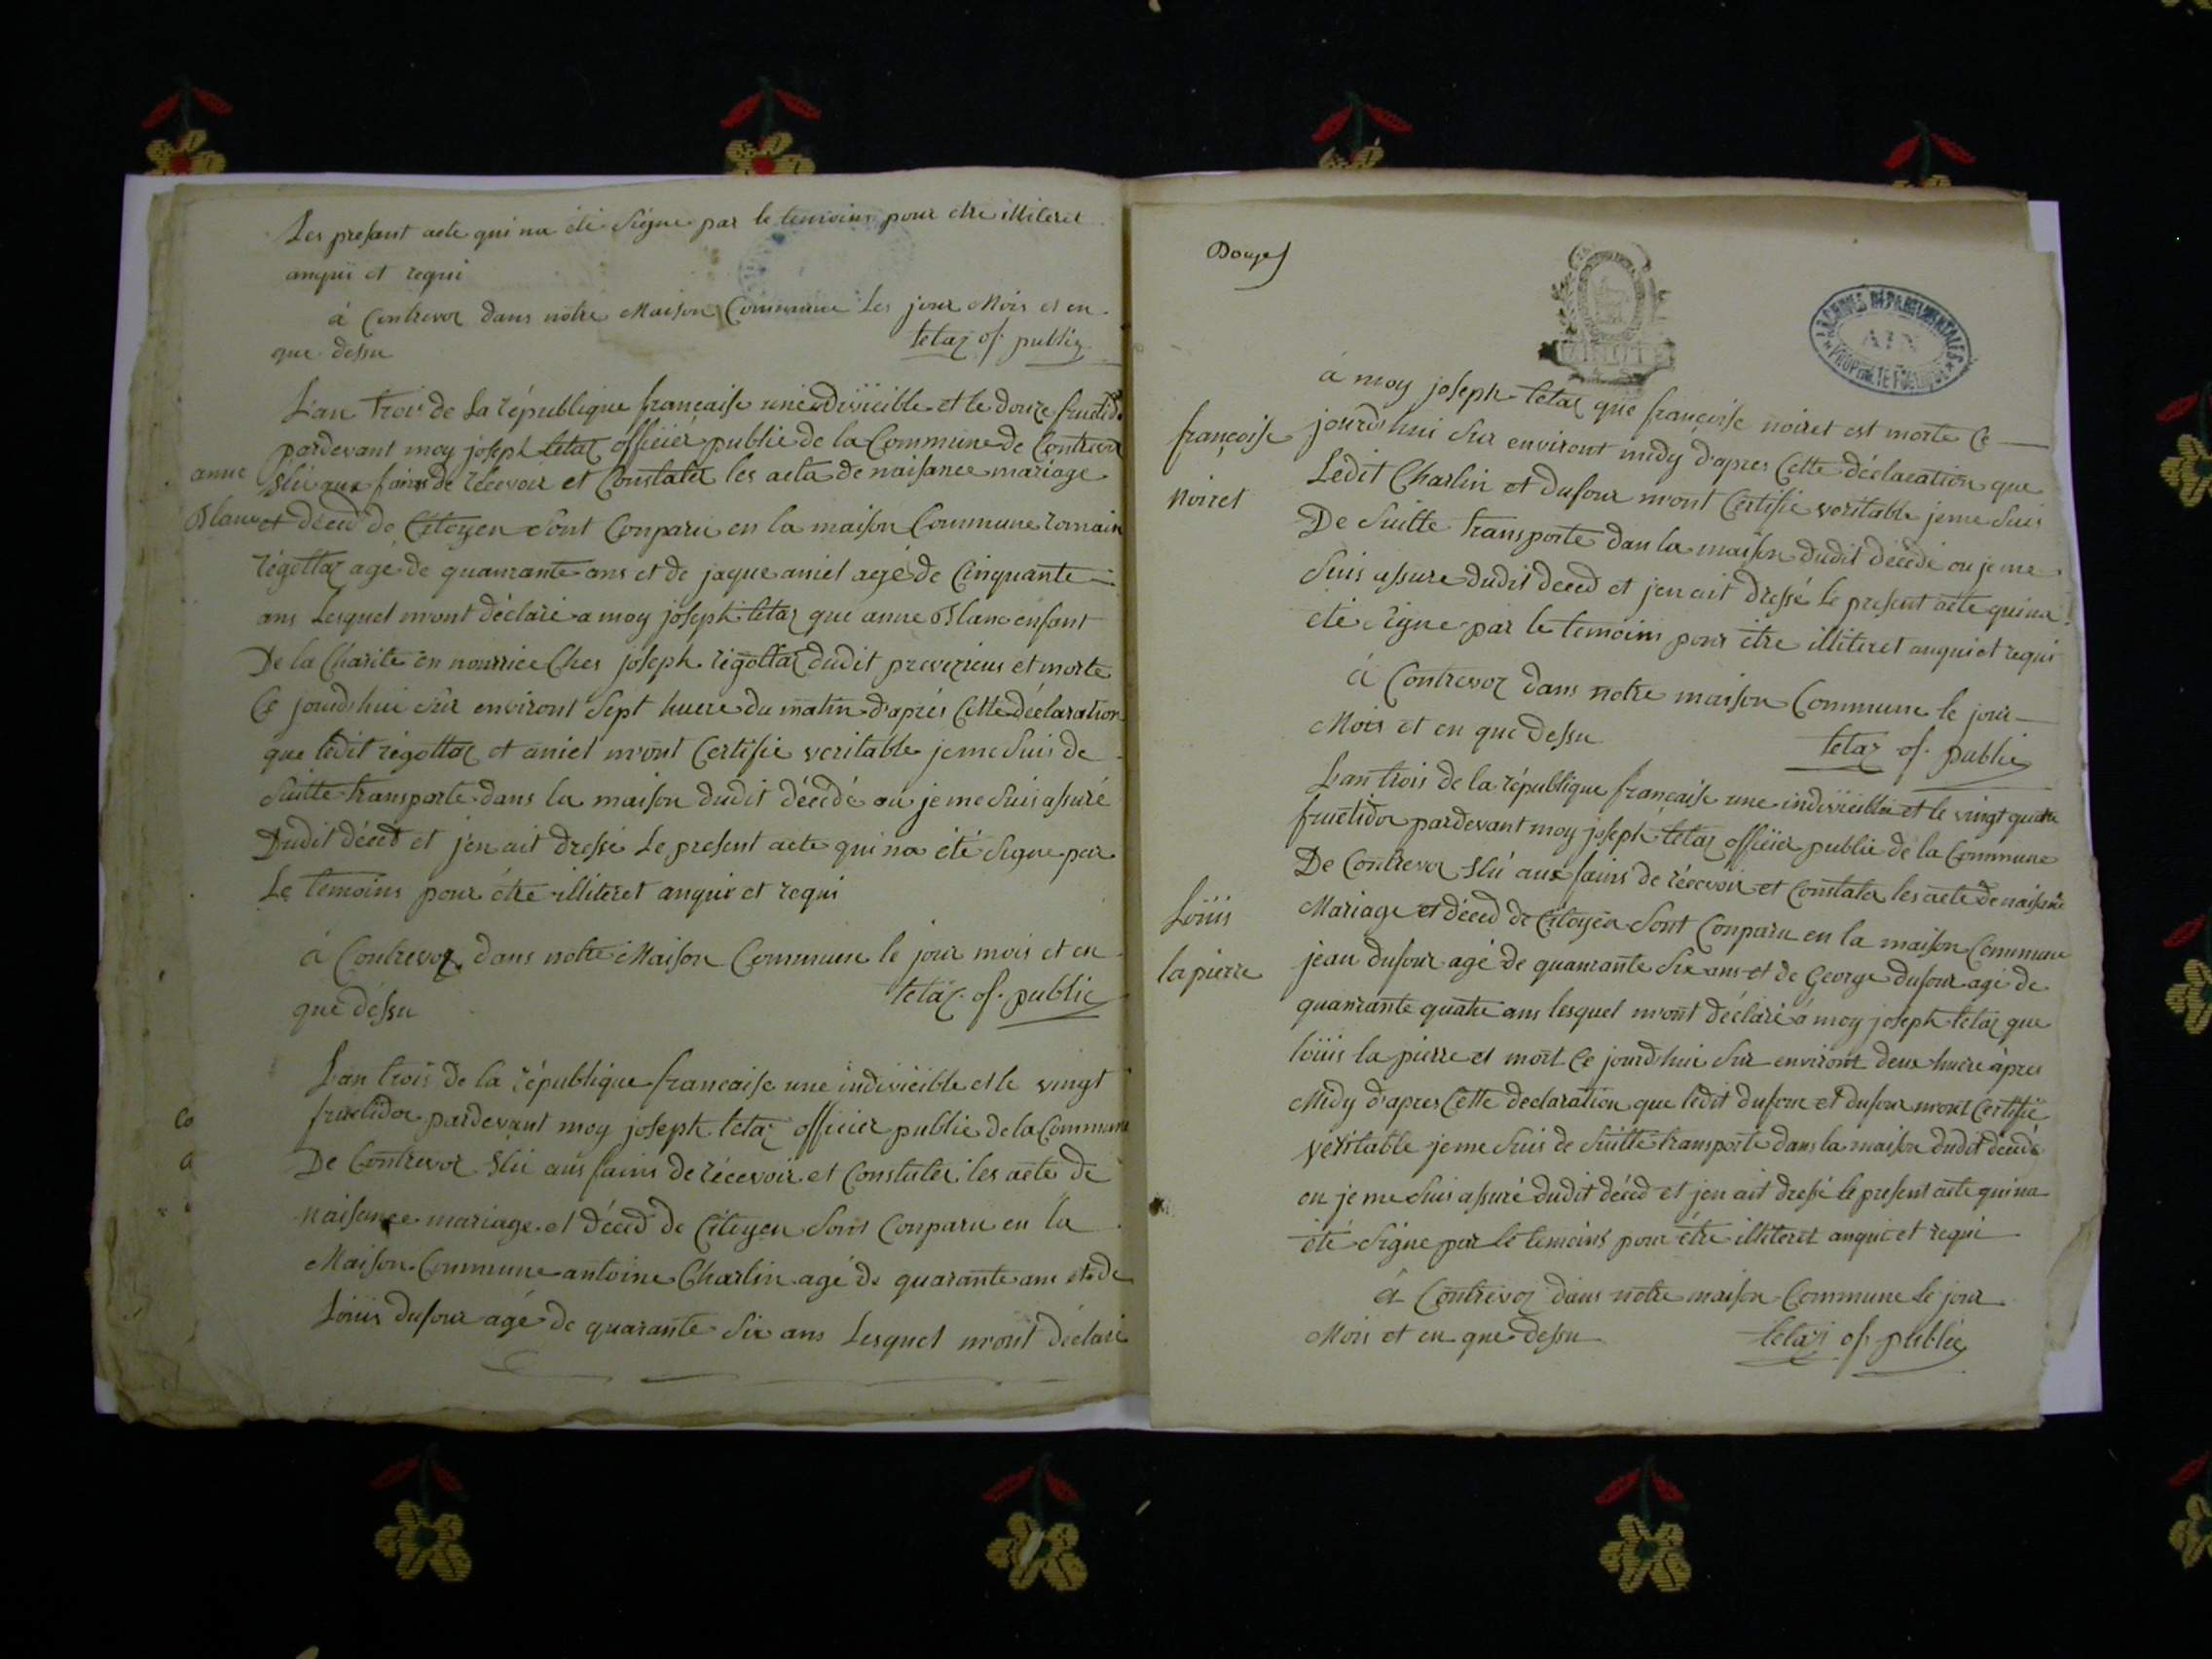 Les presant acte qui na été Signe par le temoins pour etre illiteret
anquii et requi
à Contrevoz dans notre Maison Commune Les jour Mois et en
que dessu
tetaz of. public
L'an trois de La république francaise une indivicible et le douze fructidor
pardevant moy joseph tetaz officier public de la Commune de Contrevoz
anne
Slii aux fains de récevoir et Constater les acta de naisance mariage
Blanc
et déced de Citoyen Sont Conparu en la maison Commune romain
régottaz agé de quanrante ans et de jaque amiel agé de Cinquante
ans Lesquel m'ont déclaré a moy joseph tetaz que anne Blanc enfant
De la Charite en nourrice Ches joseph régottaz dudit preveyzieus et morte
Ce jourd'hui Sur environt Sept huere du matin d'aprés Cette déclaration
que ledit régottaz et amiel m'ont Certifie veritable je me Suis de
Suitte transporte dans la maison dudit décédé ou je me Suis assuré
Dudit déced et j'en ait dressé Le present acte qui na été Signe par
Le temoins pour étre illiteret anquie et requi
à Contrevoz dans notre Maison Commune le jour mois et en
que déssu
tetaz. of. public
L'an trois de la république francaise une indivicible et le vingt
fructidor pardevant moy joseph tetaz officier public de la Commune
De Contrevoz Slii aus fains de récevoir et Constater les acte de
naisance mariage et déced de Citoyen Sont Conparu en la
Maison Commune antoine Charlin agé de quarante ans et de
Loüis dufour agé de quarante Six ans Lesquel m'ont déclaré
Co
a
Douze
ARCHIVES DÉPARTEMENTALES
AIN
à moy joseph tetaz que françoise noiret est morte Ce
françoise
jourd'hui Sur environt midy d'apres Cette déclaration que
noiret
Ledit Charlin et dufour m'ont Certifie veritable je me Suis
De Suitte transporte dan la maison dudit décédé ou je me
Suis assure dudit déced et j'en ait dressé le present acte qui na
été Signe par le temoins pour étre illiteret anqui et requi
à Contrevoz dans notre maison Commune le jour
Mois et en que dessu
tetaz of. public
L'an trois de la république française une indivicible et le vingt quatre
fructidor pardevant moy joseph tetaz officier public de la Commune
De Contrevoz Slii aux fains de récevoir et Constater les acte de naisance
Loüis
Mariage et déced de Citoyen Sont Conparu en la maison Commune
lapierre
jean dufour agé de quanrante Six ans et de George dufour agé de
quanrante quatre ans lesquel m'ont déclaré à moy joseph tetaz que
loüis la pierre et mort Ce jourd'hui Sur environt deux huere àpres
Midy d'apres Cette declaration que ledit dufour et dufour m'ont Certifie
véritable je me Suis de Suitte transporte dans la maison dudit décédé
ou je me Suis assuré dudit déced et jen ait dressé le present acte qui na
été Signe par le temoins pour étre illiteret anquie et requi
à Contrevoz dans notre maison Commune le jour
Mois et en que dessu
tetaz of public